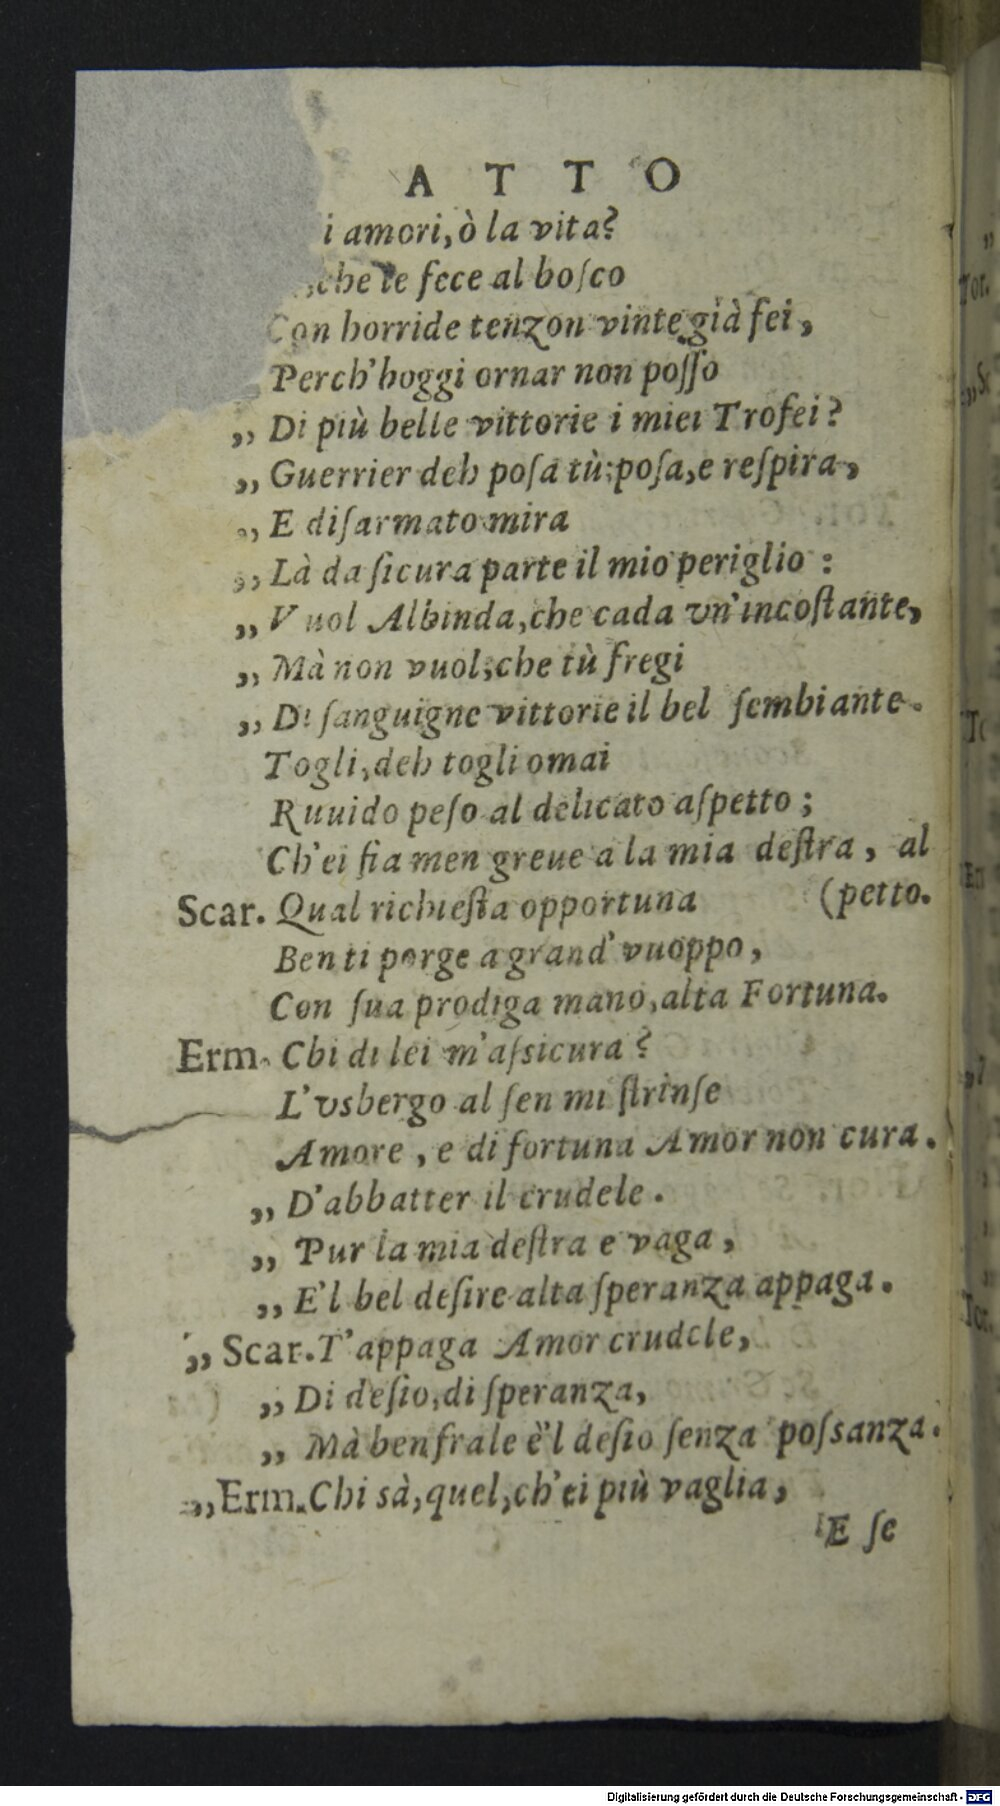 ATTO
i amori, ò la vita?
che le fece al boſco
Con horride tenzon vinte già fei,
Perch'hoggi ornar non poſſo
„ Di più belle vittorie i miei Trofei?
„ Guerrier deh poſa tù: poſa, e reſpira,
„ E diſarmato mira
„ Là da ſicura parte il mio periglio :
„ Vuol Albinda, che cada vn'incoſtante,
„ Mà non vuol, che tù fregi
„ Di ſanguigne vittorie il bel ſembiante.
Togli, deh togli omai
Ruuido peſo al delicato aſpetto ;
Ch'ei fia men greue a la mia deſtra, al
Scar. Qual richieſta opportuna (petto.
Ben ti porge a grand' vuoppo,
Con ſua prodiga mano, alta Fortuna.
Erm. Chi di lei m'aſsicura?
L'vsbergo al ſen mi ſtrinſe
Amore, e di fortuna Amor non cura.
„ D'abbatter il crudele.
„ Pur la mia deſtra e vaga,
„ E'l bel deſire alta ſperanza appaga.
„ Scar. T'appaga Amor crudele,
„ Di deſio, di ſperanza,
„ Mà ben frale è'l deſio ſenza poſsanza.
„ Erm. Chi sà, quel, ch'ei più vaglia,
E ſe
Digitalisierung gefördert durch die Deutsche Forschungsgemeinschaft - DFG